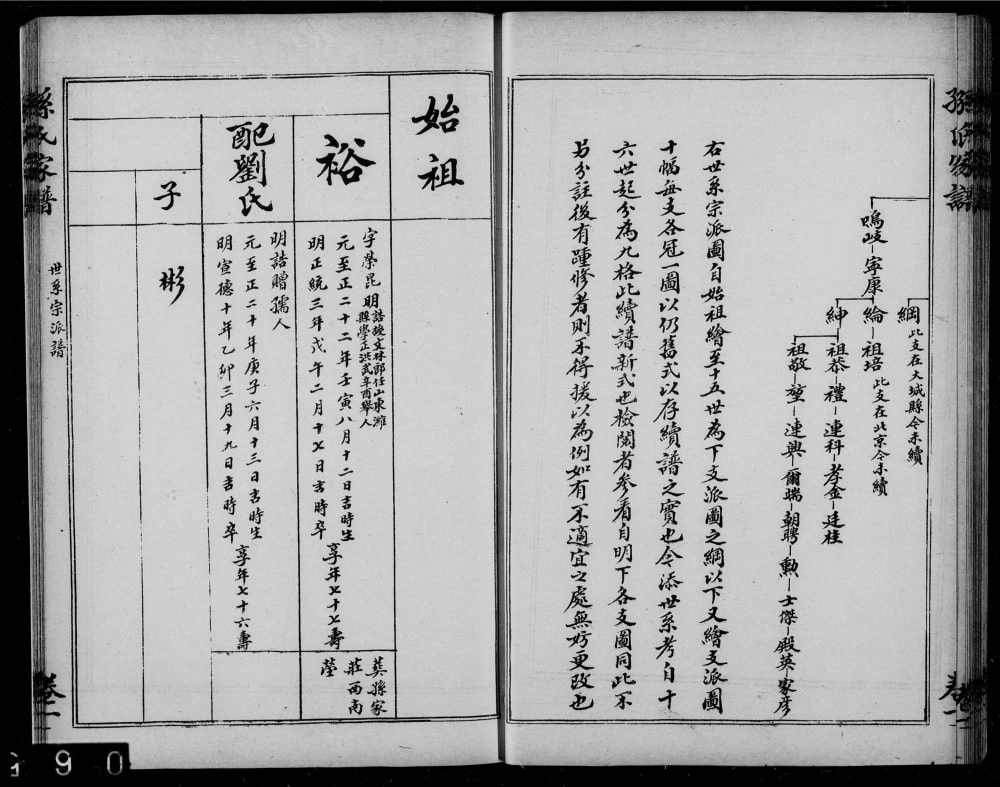 孫氏家譜
卷一
綱 此支在大城縣今未續
鳴岐 寧康
綸 祖培 此支在北京今未續
紳 祖恭 禮 連科 孝金 廷桂
祖敬 堂 連興 爾端 朝聘 勲 士傑 殿英 家彦
右世系宗派圖自始祖繪至十五世為下支派圖之綱以下又繪支派圖
十幅每支各冠一圖以仍舊式以存續譜之實也今添世系考自十
六世起分為九格此續譜新式也檢閱者參看自明下各支圖同此不
另分註後有踵修者則不得援以為例如有不適宜之處無妨更改也
始祖
裕
字榮昆 明誥授文林郎任山東濰
縣學正洪武辛酉舉人
元至正二十二年壬寅八月十二日吉時生
明正統三年戊午二月十七日吉時卒
享年七十七壽
葬孫家
莊西南
塋
配劉氏
明誥贈孺人
元至正二十年庚子六月十三日吉時生
明宣德十年乙卯三月十九日吉時卒
享年七十六壽
子
彬
孫氏家譜
世系宗派譜
卷一
9 0